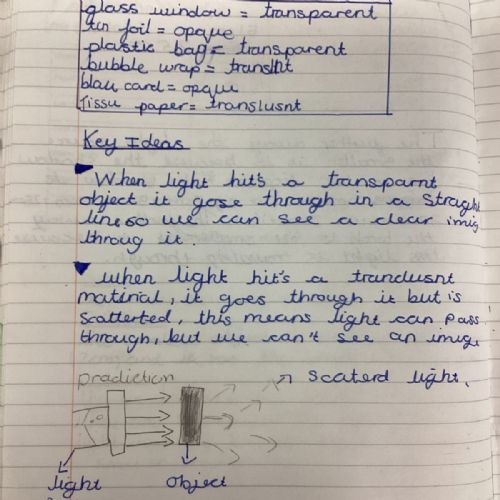 glass window = transparent
tin foil = opaque
plastic bag = transparent
bubble wrap = translnt
blak card = opaque
Tissu paper = translusnt
Key Ideas
When light hit's a transparnt
object it gose through in a straight
line so we can see a clear imig
throug it.
when light hit's a tranclusnt
matirial, it goes through it but is
scatterted, this means light can pass
through, but we can't see an imige
pradiction
scaterd light.
light
object